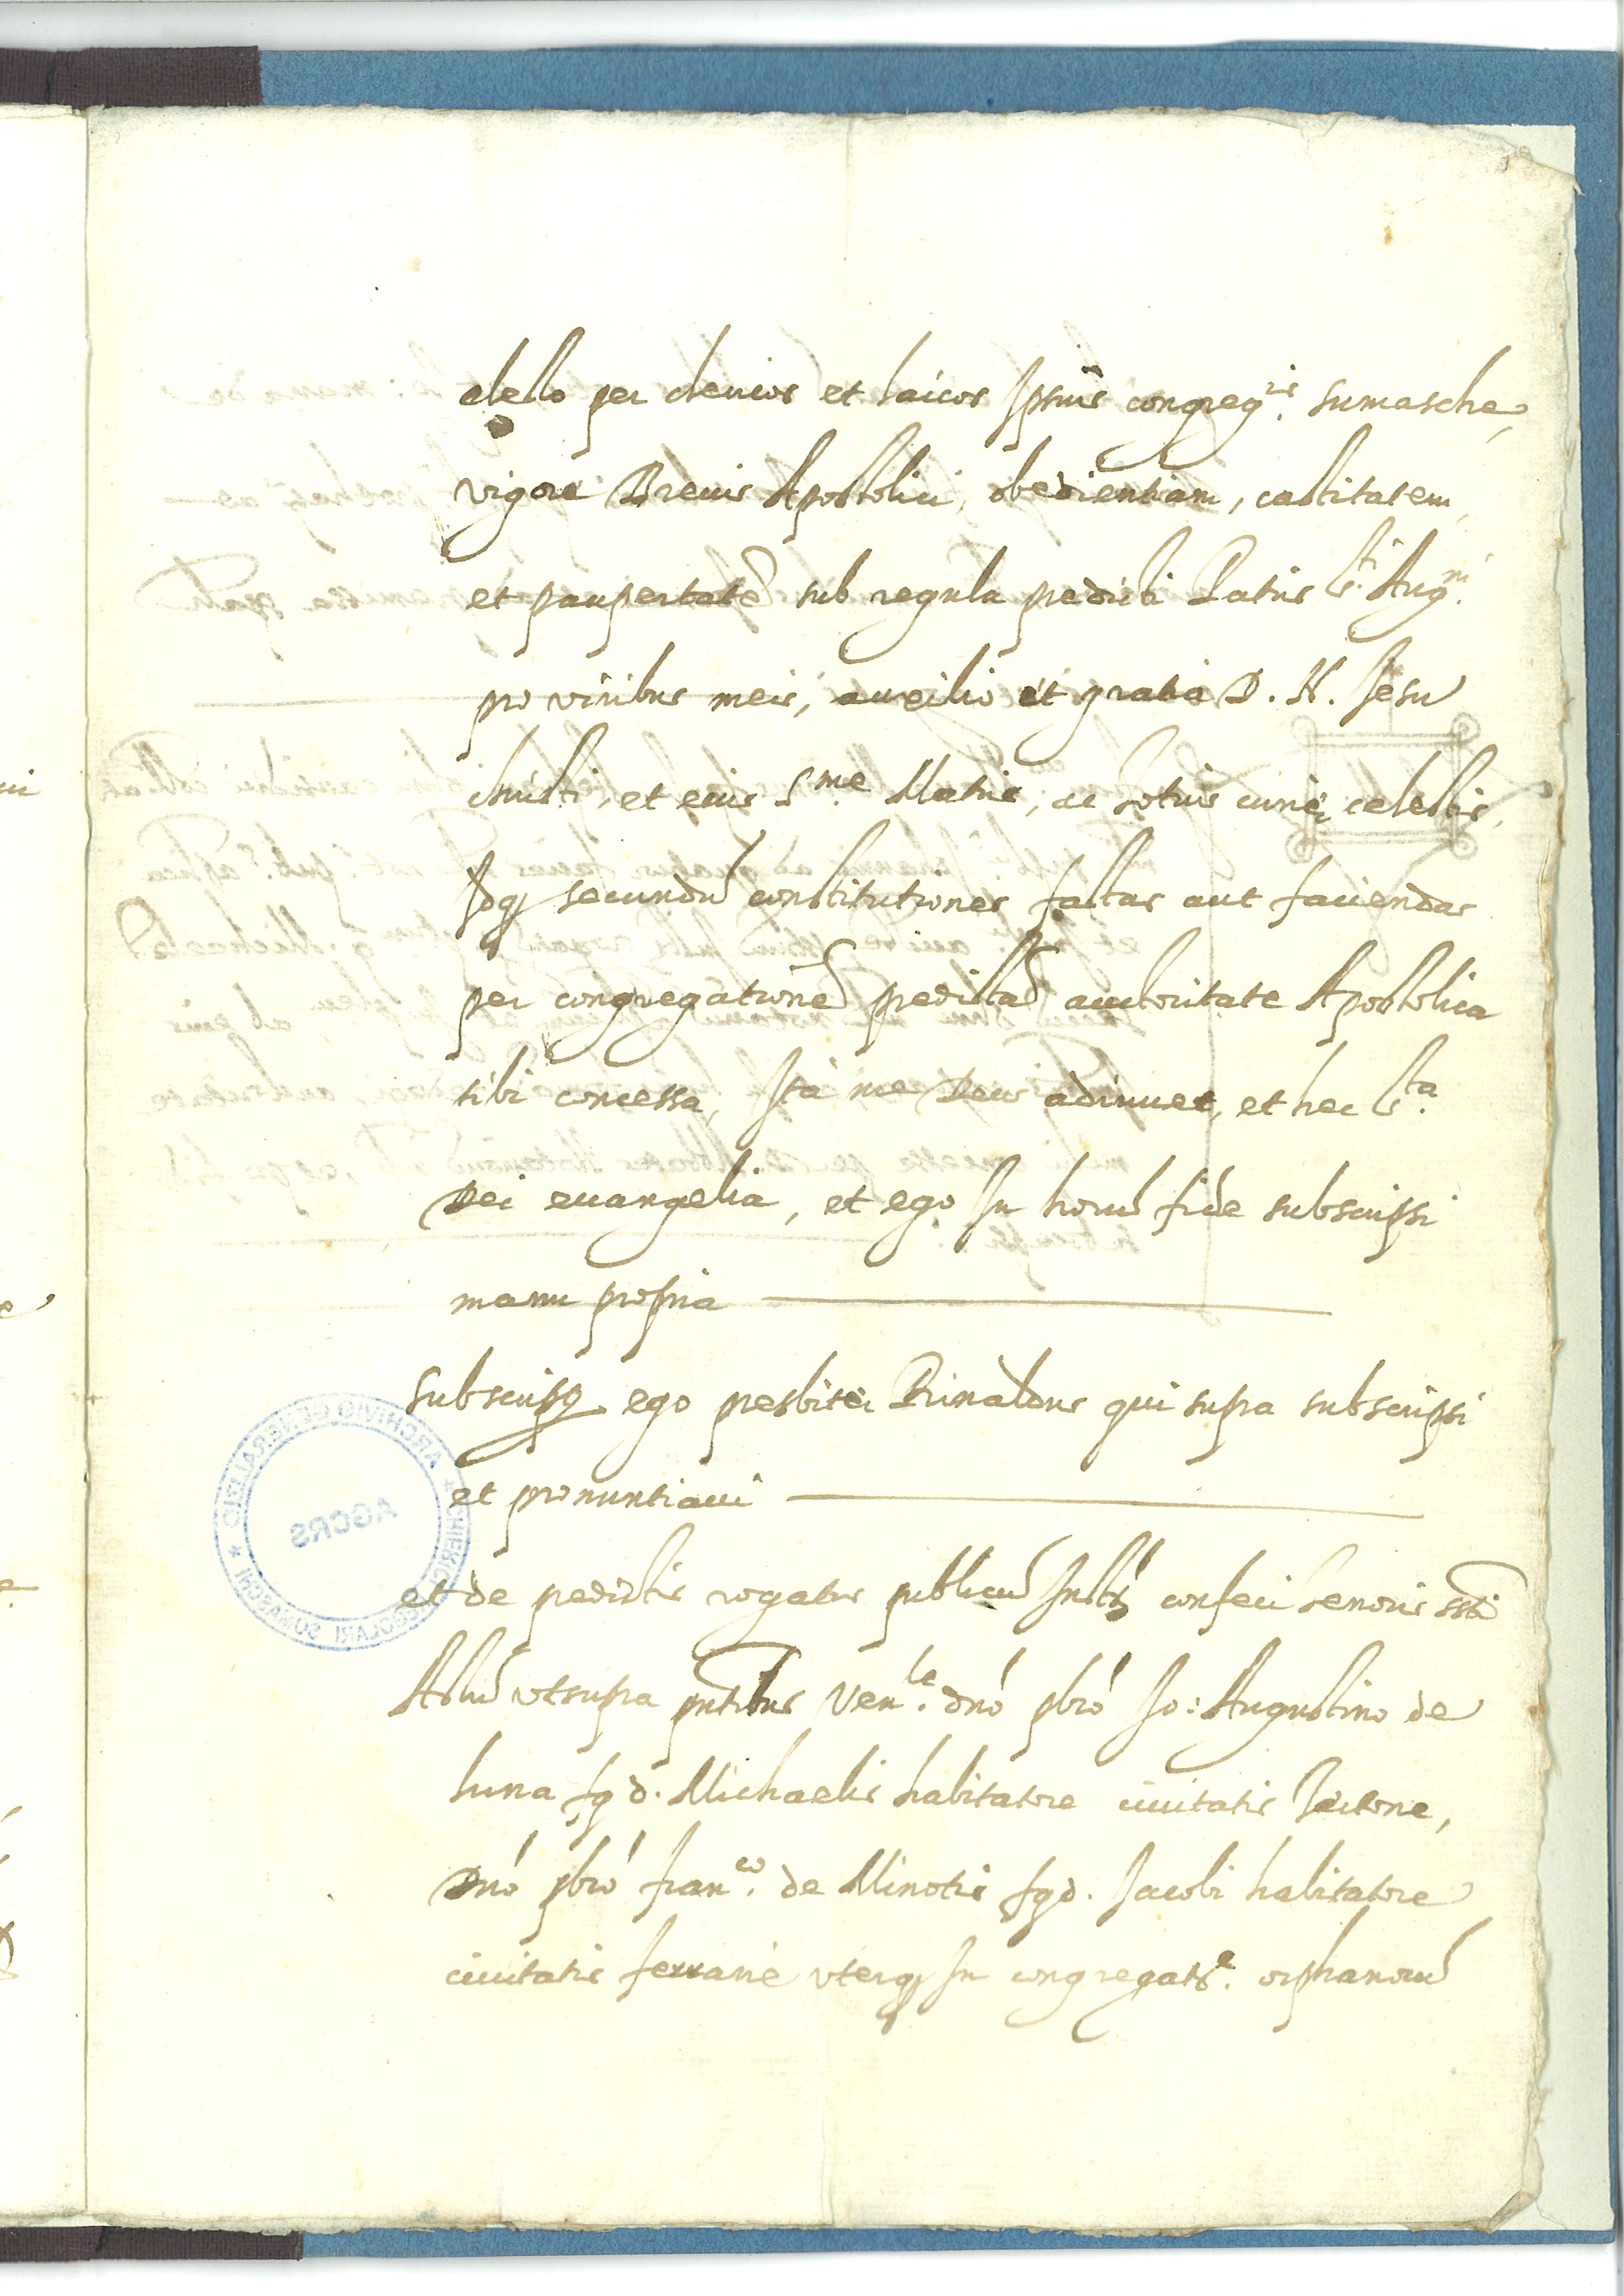 electo per clericos et laicos Ipsius congreg.nis sumasche,
vigore Brevis Apostolici, obedientiam, castitatem,
et paupertatē sub regula predicti Patris S.ti Aug.ni
pro viribus meis, auxilio et gratia D. N. Jesu
christi, et eius S.me Matris, ac totius curie celestis,
Idq secundū constitutiones factas aut faciendas
per congregationē predictā auctoritate Apostolica
sibi concessa, Ita me Deus adiuuet, et hec S.ta
Dei euangelia, et ego In horū fide subscripsi
manu propria
Subscriptio ego presbiter Rinaldus qui supra subscripsi
et pronuntiaui
et de predictis rogatus publicū Instr confeci tenoris sti
Actū vt supra pntibus Ven.le dnó pbró Jo: Augustino de
luna fq d. Michaelis habitatore ciuitatis
Dnó pbró fran.co de Minotis fqd. Jacobi habitatore
ciuitatis ferrarie vterq In congregat.e orphanorū
ARCHIVIO GENERALIZIO
CHIERICI REGOLARI SOMASCHI
AGCRS